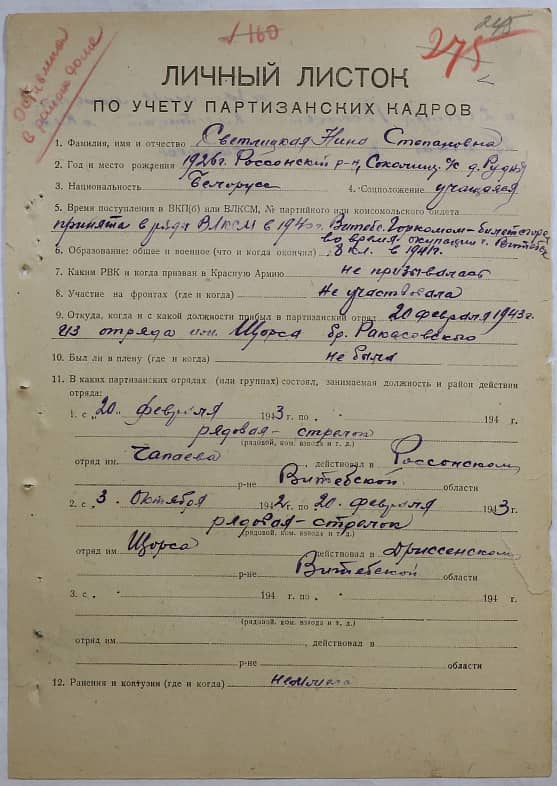 160
245
275
Оставлена
в
ЛИЧНЫЙ ЛИСТОК
ПО УЧЕТУ ПАРТИЗАНСКИХ КАДРОВ
1. Фамилия, имя и отчество Светлицкая Нина Степановна
2. Год и место рождения 1926г. Россонский р-н, Соколищ. с/с д. Рудня
3. Национальность Белоруса 4. Соцположение учащаяся
5. Время поступления в ВКП(б) или ВЛКСМ, № партийного или комсомольского билета
принята в ряды ВЛКСМ в 1940г. Витебс. Горкомом - билет сгорел
во время оккупации г. Витебска
6. Образование: общее и военное (что и когда окончил) 8 кл. в 1941г.
7. Каким РВК и когда призван в Красную Армию не призывалась
8. Участие на фронтах (где и когда) Не участвовала
9. Откуда, когда и с какой должности прибыл в партизанский отряд 20 февраля 1943г.
из отряда им. Щорса бр. Ракасовского
10. Был ли в плену (где и когда) не была
11. В каких партизанских отрядах (или группах) состоял, занимаемая должность и район действия
отряда:
1. с „20„ февраля 1943г. по „ „ 194 г.
рядовая - стрелок
(рядовой, ком. взвода и т. д.)
отряд им. Чапаева, действовал в Россонском
р-не Витебской области
2. с „3„ Октября 1942г. по „20„ февраля 1943 г.
рядовая - стрелок
(рядовой, ком. взвода и т. д.)
отряд им. Щорса действовал в Дриссенском
р-не Витебской области
3. с „ „ 194 г. по „ „ 194 г.
(рядовой, ком. взвода и т. д.)
отряд им. , действовал в
р-не области
12. Ранения и контузии (где и когда)